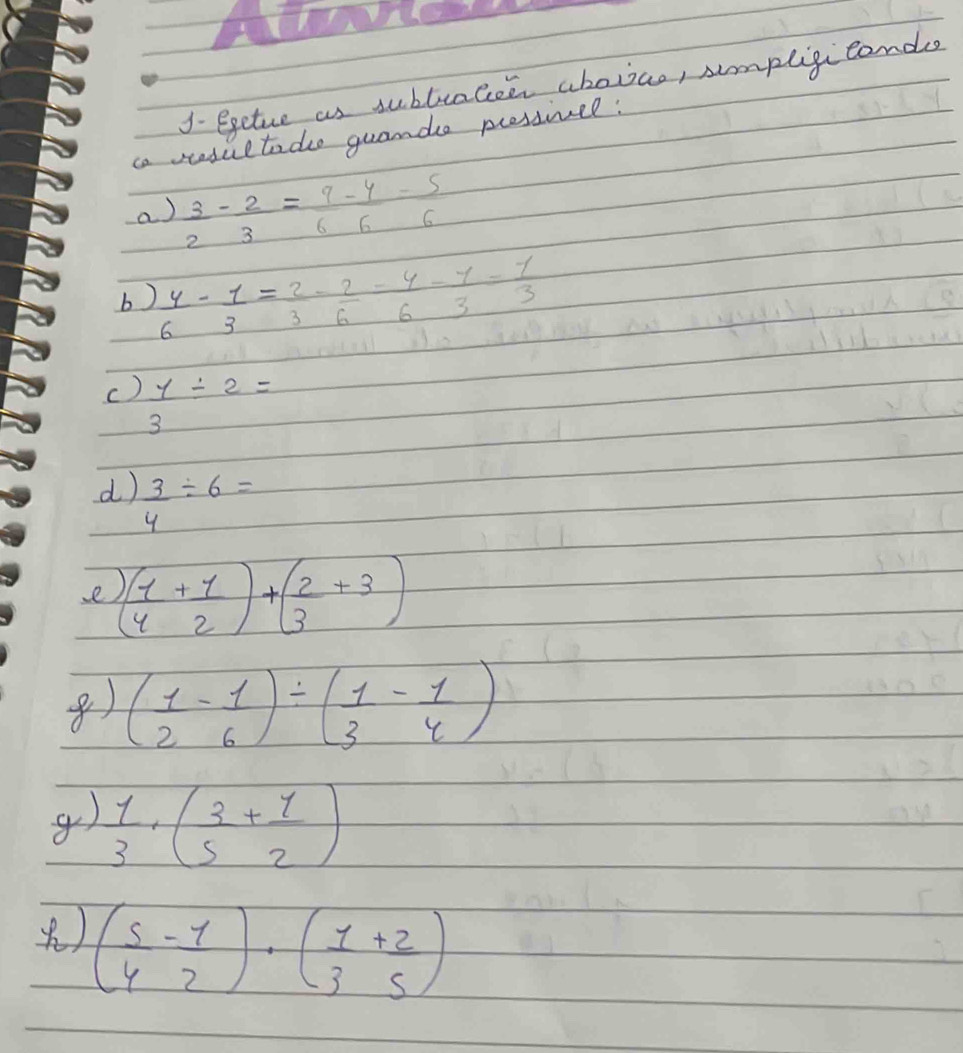 1- Egetue as subtuações abaixo, simpligicando
o resultado quando possivel:
a) 3/2 - 2/3 = 9/6 - 4/6 = 5/6
b) 4/6 - 1/3 = 2/3 - 2/6 - 4/6 - 1/3 = 1/3
c) 1/3 ÷ 2 =
d) 3/4 ÷ 6 =
e) (1/4 + 1/2) + (2/3 + 3)
f) (1/2 - 1/6) ÷ (1/3 - 1/4)
g) 1/3 . (3/5 + 1/2)
h) (5/4 - 1/2) . (1/3 + 2/5)